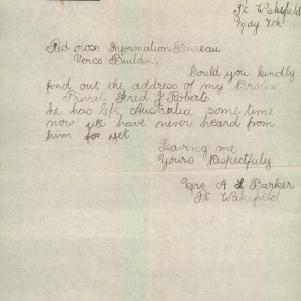 Pt Wakefield
May 7th
Red cross Information Bureau
Verco Building
Could you kindly
find out the address of my Brother
Private Fred J Roberts
he has left Australia some time
now we have never heard from
him yet
Leaving me
Yours Respectfully
Mrs A L Barker
Pt Wakefield